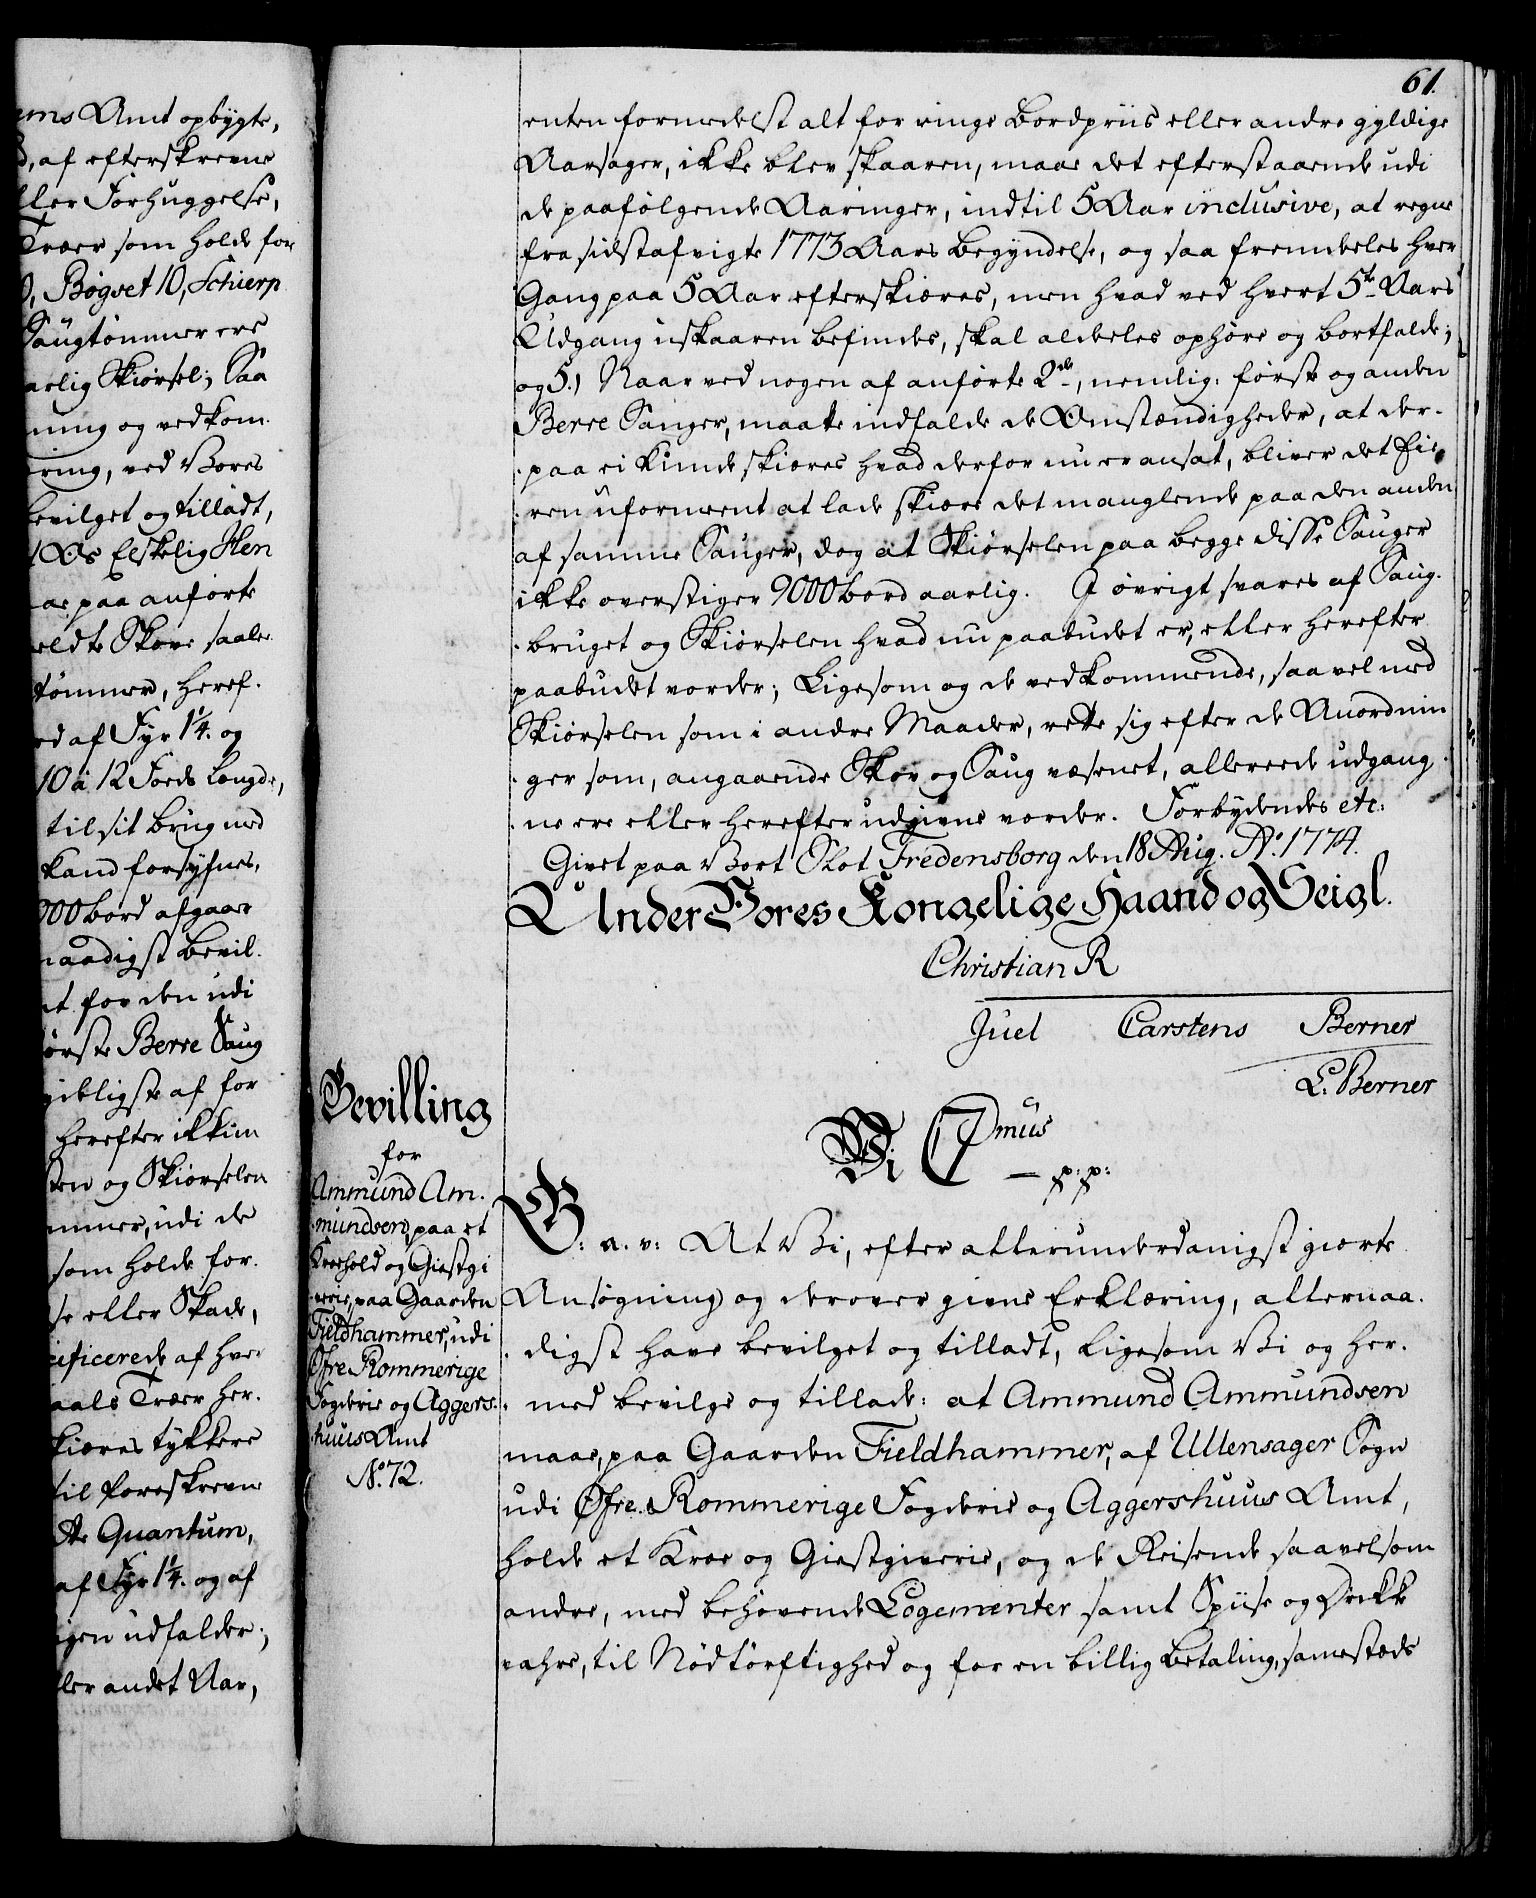 ems Amt opbygte,
d, af efterskrevne
ller Forhuggelse,
Træer som holde for
0, Bøgvet 10, Schierp
Saugtømmer ere
aarlig Skiørsel; Saa
ning og vedkom
ring, ved Vores
bevilget og tilladt,
Os Elskelig Hen
paa anførte
eldte Skove saale
tømmer, heref-
ed af Fyr 1 1/4. og
10 à 12 Foeds Længde,
til sit brug med
kand forsÿnes,
000 bord afgaar
naadigst bevil-
t for den udi
første Berre Saug
gibligste af for
herefter ikkun
ten og Skiørselen
mmer, udi de
som holde for-
se eller Skade,
cificerede af hver
aals Træer her-
skiæres tykkere
til foreskrevne
tte Quantum,
af Fyr 1 1/4. og af
igen udfalder;
ller andet Aar,
61.
enten formedelst alt for ringe Bordpriis eller andre gyldige
Aarsager, ikke blev skaaren, maae det efterstaaende udi
de paafølgende Aaringer, indtil 5 Aar inclusive, at regne
fra sidstafvigte 1773 Aars Begyndelse, og saa fremdeles hver
Gang paa 5 Aar efterskiæres, men hvad ved hvert 5te Aars
Udgang uskaaren befindes, skal aldeeles ophøre og bortfalde;
og 5.) Naar ved nogen af anførte 2de, nemlig: første og anden
Berre Sauger, maatte indfalde de Omstændigheder, at der-
paa ei kunde skiæres hvad derfor nu er ansat, bliver det Eie-
ren uformeent at lade skiære det manglende paa den anden
af samme Sauger, dog at Skiørselen paa begge disse Sauger
ikke overstiger 9000 bord aarlig. I øvrigt svares af Saug-
bruget og Skiørselen hvad nu paabudet er, eller herefter
paabudet vorder; Ligesom og de vedkommende, saavel med
Skiørselen som i andre Maader, rette sig efter de Anordnin
ger som, angaaende Skov og Saug væsenet, allereede udgang-
ne ere eller herefter udgivne vorder. Forbydendes etc:
Givet paa Vort Slot Fredensborg den 18 Aug. Ao. 1774.
Under Vores Kongelige Haand og Seigl.
Christian R
Juel Carstens Berner
L. Berner
Bevilling
for
Ammund Am-
mundsen, paa et
Kroehold og Giestgi
verie, paa Gaarden
Fieldhammer, udi
Øfre Rommerige
Fogderie og Aggers-
huus Amt
No. 72.
Vi C 7mus
— p: p:
G: a. v: At Vi, efter allerunderdanigst giorte
Ansøgning og derover givne Erklæring, allernaa-
digst have bevilget og tilladt, ligesom Vi og her-
med bevilge og tillade: at Ammund Ammundsen
maae, paa Gaarden Fieldhammer, af Ullensager Sogn
udi Øfre Rommerige Fogderie og Aggershuus Amt,
holde et Kroe og Giestgiverie, og de Reisende saavelsom
andre, med behøvende Logementer samt Spiise og Drikke
vahre, til Nødtørftighed og for en billig Betaling, samestæds